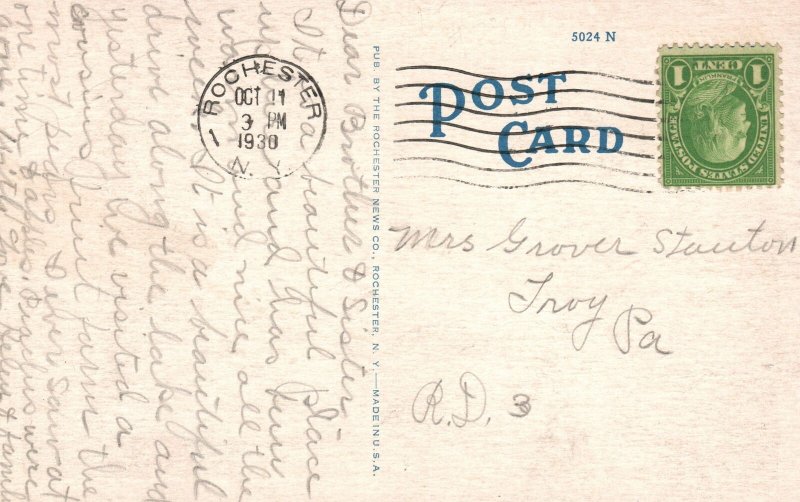 5024 N
POST
CARD
ROCHESTER
OCT 11
3 PM
1930
N.Y.
1
1 CENT 1
UNITED STATES POSTAGE
FRANKLIN
PUB. BY THE ROCHESTER NEWS CO., ROCHESTER, N. Y.—MADE IN U.S.A.
Mrs Grover Stanton
Troy
Pa
R.D. 3
Dear Brother & Sister
It a beautiful place
and has been
and nice all the
week. It is a beautiful
drive along the lake and
yesterday we visited a
fruit farm the
most I ever saw at
one time apples, Peaches were
With love